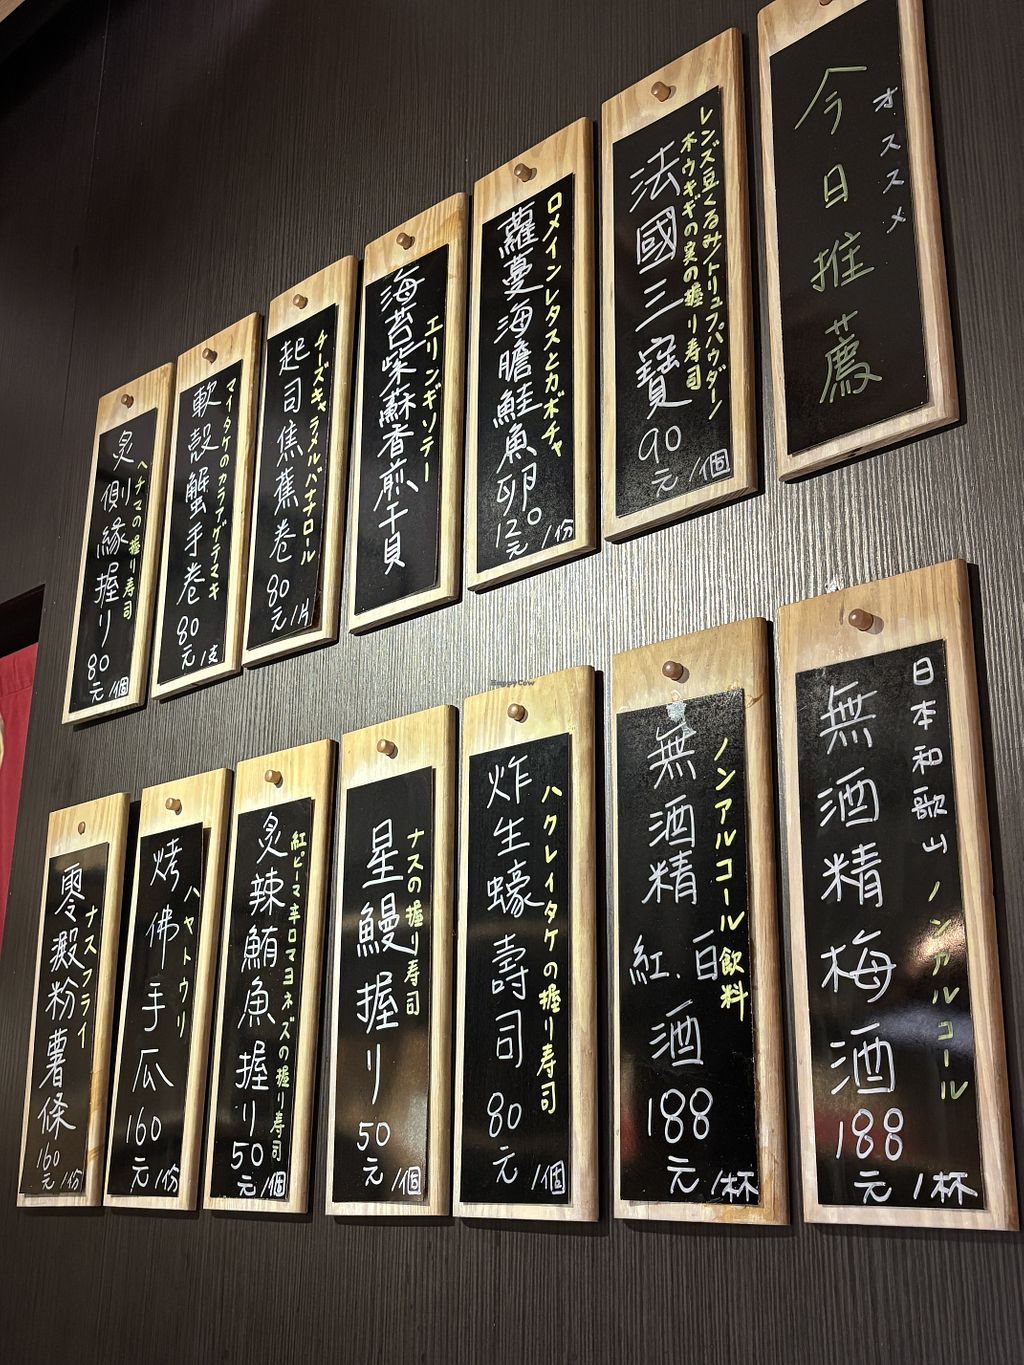 今日推薦
オススメ
レンズ豆くるみ/トリュフパウダーン
ホウキギの実の握り寿司
法國三寶 90元/個
ロメインレタスとカボチャ
蘿蔓海膽鮭魚卵 120元/份
エリンギソテー
海苔柴蘇香煎干貝
チーズキャラメルバナナロール
起司焦蕉卷 80元/片
マイタケのカラアゲテマキ
軟殼蟹手卷 80元/支
ヘチマの握り寿司
炙側緣握り 80元/個
日本和歌山 ノンアルコール
無酒精梅酒 188元/杯
ノンアルコール飲料
無酒精紅.白酒 188元/杯
ハクレイタケの握り寿司
炸生蠔壽司 80元/個
ナスの握り寿司
星鰻握り 50元/個
紅ピーマ辛口マヨネズの握り寿司
炙辣鮪魚握り 50元/個
ハヤトウリ
烤佛手瓜 160元/份
ナスフライ
零澱粉薯條 160元/份
HappyCow